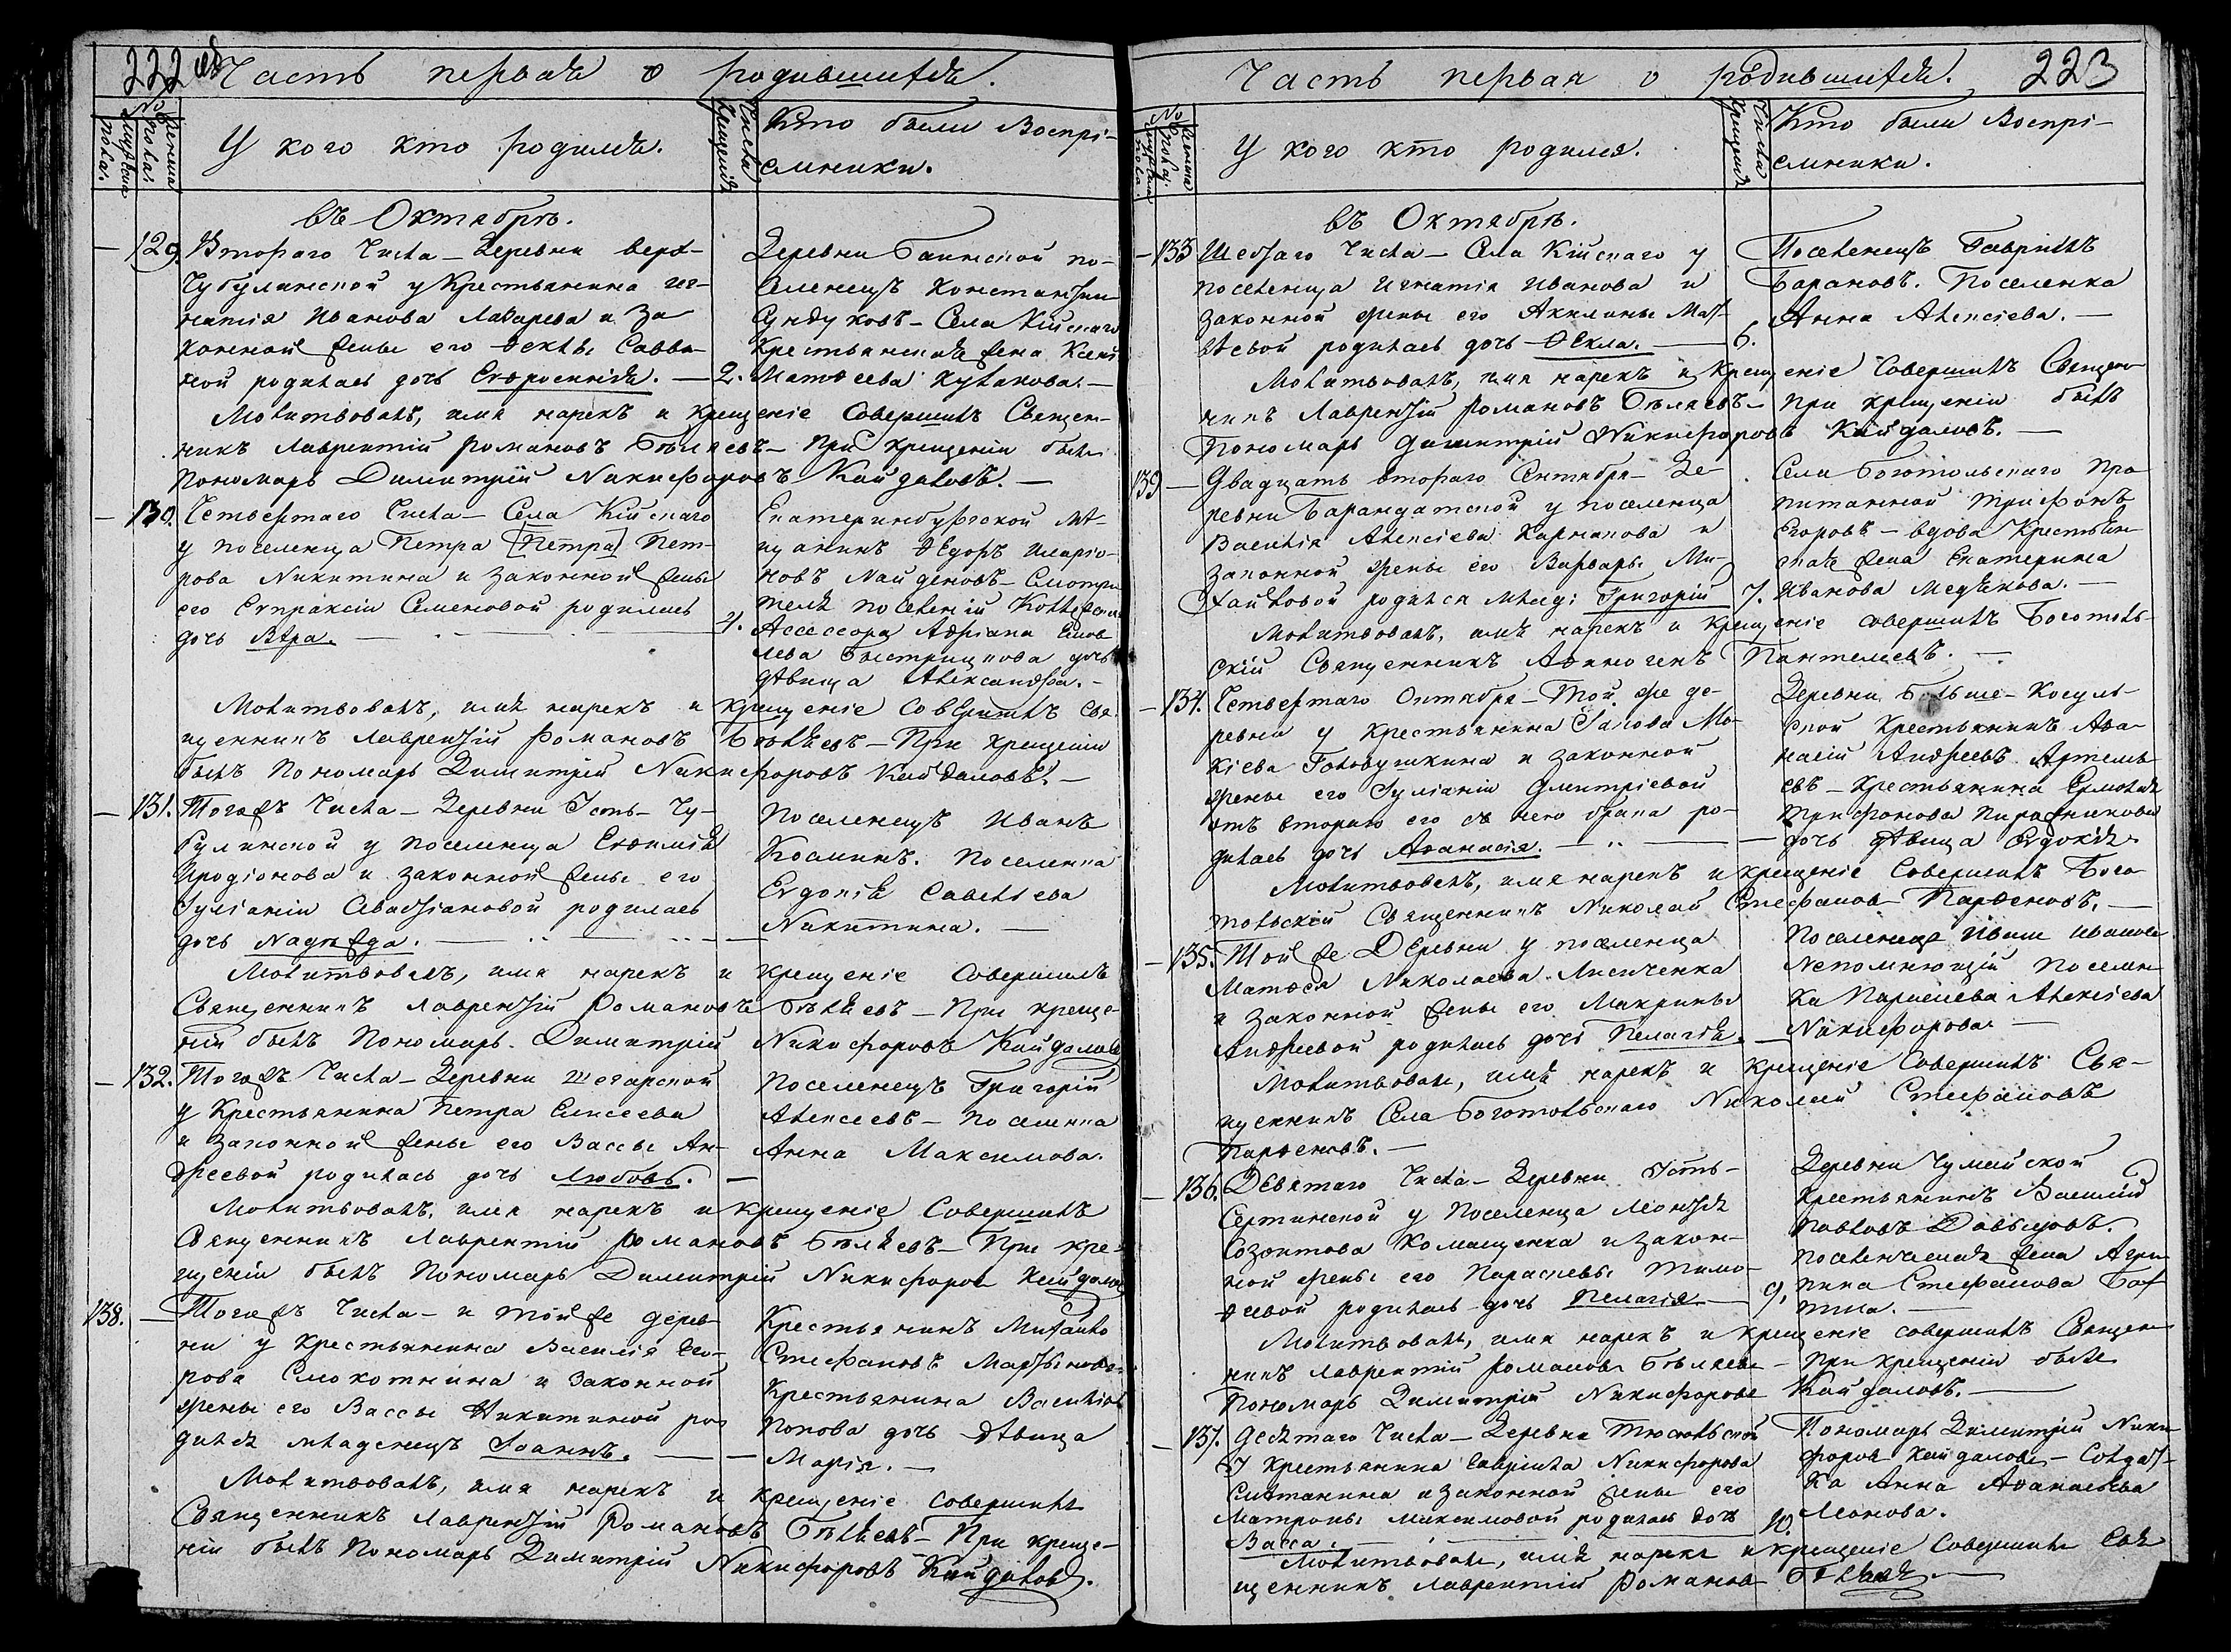 222 об
Часть первая о родившихся.
№ мужеска пола.
женска пола.
У кого кто родился.
Числа крещенія
Кто были Воспрі-
емники.
въ Октябрѣ.
— 129. Втораго Числа — Деревни Верх-
Чубулинской у Крестьянина Иг-
натія Иванова Лазарева и За
конной жены его Ѳеклы Савви-
ной родилась дочь Евфросинія. — 2.
Деревни Баимской по-
селенецъ Константин
Сундуковъ — Села Кійскаго
Крестьянская жена Ксенія
Матѳеева Кулакова. —
Молитвовалъ, имя нарекъ и крещеніе Совершилъ Священ-
никъ Лаврентій Романовъ Бѣляевъ — При крещеніи былъ
Пономарь Димитрій Никифоровъ Кайдаловъ. —
— 130. Четвертаго Числа — Села Кійскаго
у поселенца Петра (Петра) Пет-
рова Никитина и законной жены
его Евпраксіи Семеновой родилась
дочь Вѣра. — 4.
Екатеринбургской мѣ-
щанинъ Ѳедоръ Иларіо-
новъ Найденовъ — Смотри
теля поселеній Коллежск
Ассессора Адріана
Быстрицкова дочь
дѣвица Александра. —
Молитвовалъ, имя нарекъ и крещеніе Совершилъ Свя
щенникъ Лаврентій Романовъ Бѣляевъ — При крещеніи
былъ Пономарь Димитрій Никифоровъ Кайдаловъ. —
— 131. Тогожъ Числа — Деревни Усть-Чу-
булинской у поселенца Евфимія
Иродіонова и законной жены его
Іуліаніи Севастіановой родилась
дочь Надежда. —
Поселенецъ Иванъ
Косминъ. Поселенка
Евдокія Савельева
Никитина. —
Молитвовалъ, имя нарекъ и крещеніе Совершилъ
Священникъ Лаврентій Романовъ Бѣляевъ — При креще-
ніи былъ Пономарь Димитрій Никифоровъ Кайдаловъ
— 132. Тогожъ Числа — Деревни Шегарской
у Крестьянина Петра Елисеева
и законной жены его Вассы Ан-
дреевой родилась дочь Любовь. —
Поселенецъ Григорій
Алексеевъ — поселенка
Анна Максимова.
Молитвовалъ, имя нарекъ и крещеніе Совершилъ
Священникъ Лаврентій Романовъ Бѣляевъ — При кре-
щеніи былъ Пономарь Димитрій Никифоровъ Кайдаловъ
138. — Тогожъ Числа — и той же дерев-
ни у Крестьянина Василія Его-
рова Смокотнина и Законной
жены его Вассы Никитиной ро
дился младенецъ Іоаннъ. —
Крестьянинъ Михайло
Стефановъ Мартыновъ
Крестьянина Василія
Попова дочь дѣвица
Марія. —
Молитвовалъ, имя нарекъ и крещеніе Совершилъ
Священникъ Лаврентій Романовъ Бѣляевъ — При креще-
ніи былъ Пономарь Димитрій Никифоровъ Кайдаловъ.
Часть первая о родившихся.
223
№ мужеска пола.
женска пола.
У кого кто родился.
Числа крещенія
Кто были Воспрі-
емники.
въ Октябрѣ.
— 133 Шестаго Числа — Села Кійскаго у
поселенца Игнатія Иванова и
законной жены его Акилины Мат
вѣевой родилась дочь Ѳекла. — 6.
Поселенецъ Гавріилъ
Барановъ. Поселенка
Анна Алексіева. —
Молитвовалъ, имя нарекъ и крещеніе Совершилъ Священ
никъ Лаврентій Романовъ Бѣляевъ — при крещеніи былъ
Пономарь Димитрій Никифоровъ Кайдаловъ. —
139 — Двадцать втораго Сентября — Де-
ревни Барандатской у поселенца
Василія Алексіева Карнакова и
законной жены его Варвары Ми-
хайловой родился млад: Григорій 7.
Села Боготольскаго про
питанной Трифонъ
Егоровъ — вдова Крестьян
ская жена Екатерина
Иванова Медякова. —
Молитвовалъ, имя нарекъ и крещеніе совершилъ Боготоль-
скій Священникъ Аѳиногенъ Пантелеевъ. —
— 134. Четвертаго Октября — Той же де-
ревни у крестьянина Іакова Мо-
кіева Головушкина и законной
жены его Іуліаніи Дмитріевой
отъ втораго его съ нею брака ро-
дилась дочь Аѳанасія. —
Деревни Больше-Косуль-
ской Крестьянинъ Аѳа-
насій Андреевъ Артемь-
евъ — Крестьянина Ермолая
Трифонова
дочь дѣвица Евдокія.
Молитвовалъ, имя нарекъ и крещеніе Совершилъ Бого
тольскій Священникъ Николай Стефановъ Парѳеновъ. —
— 135. Той же Деревни у поселенца
Матѳея Николаева Лисиченка
и законной жены его Макрины
Андреевой родилась дочь Пелагія. —
поселенецъ Иванъ Ивановъ
Непомнющій поселен
ка Параскева Алексіева
Никифорова. —
Молитвовалъ, имя нарекъ и крещеніе Совершилъ Свя-
щенникъ Села Боготольскаго Николай Стефановъ
Парѳеновъ. —
— 136. Девятаго Числа — Деревни Усть-
Сертинской у поселенца Леонтія
Созонтова Комащенка и закон-
ной жены его Параскевы Тимо-
ѳеевой родилась дочь Пелагія — 9.
Деревни Чумайской
крестьянинъ Василій
Павловъ Давыдовъ.
поселенческая жена Агри
пина Стефанова Бат
тиха. —
Молитвовалъ, имя нарекъ и крещеніе совершилъ Священ
никъ Лаврентій Романовъ Бѣляевъ — при крещеніи былъ
Пономарь Димитрій Никифоровъ Кайдаловъ. —
— 137. Десятаго Числа — Деревни Тюсюльской
у Крестьянина Гавріила Никифорова
Сметанина и законной жены его
Матроны Максимовой родилась дочь
Васса. — 10.
Пономарь Димитрій Ники
форовъ Кайдаловъ — Солдат-
ка Анна Аѳанасьева
Леонова.
Молитвовалъ, имя нарекъ и крещеніе Совершилъ Свя
щенникъ Лаврентій Романовъ Бѣляевъ. —